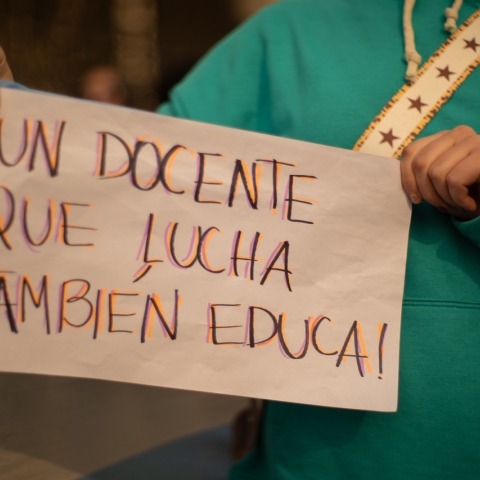 UN DOCENTE
QUE LUCHA
TAMBIEN EDUCA!